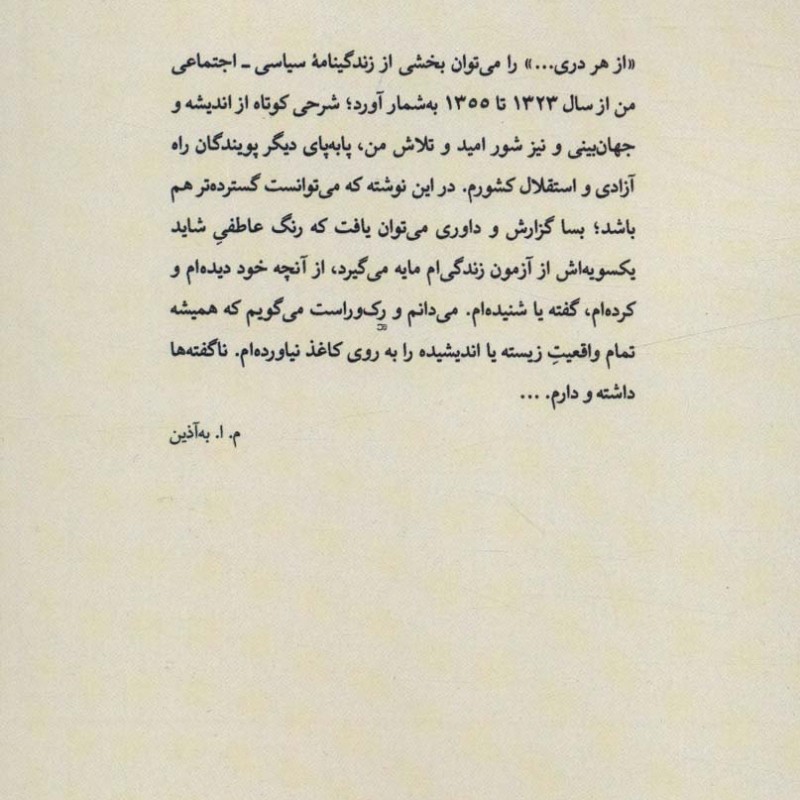 «از هر دری...» را می‌توان بخشی از زندگینامهٔ سیاسی ـ اجتماعی
من از سال ۱۳۲۳ تا ۱۳۵۵ به‌شمار آورد؛ شرحی کوتاه از اندیشه و
جهان‌بینی و نیز شور امید و تلاش من، پابه‌پای دیگر پویندگان راه
آزادی و استقلال کشورم. در این نوشته که می‌توانست گسترده‌تر هم
باشد؛ بسا گزارش و داوری می‌توان یافت که رنگ عاطفیِ شاید
یکسویه‌اش از آزمون زندگی‌ام مایه می‌گیرد، از آنچه خود دیده‌ام و
کرده‌ام، گفته یا شنیده‌ام. می‌دانم و رک‌وراست می‌گویم که همیشه
تمام واقعیتِ زیسته یا اندیشیده را به روی کاغذ نیاورده‌ام. ناگفته‌ها
داشته و دارم. ...
م. ا. به‌آذین